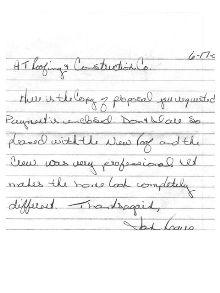 6-17-
HT Roofing & Construction Co.
Here is the Copy of proposal you requested
Payment is enclosed. Don & I are So
pleased with the New roof and the
Crew was very professional. It
makes the home look completely
different. Thanks again,